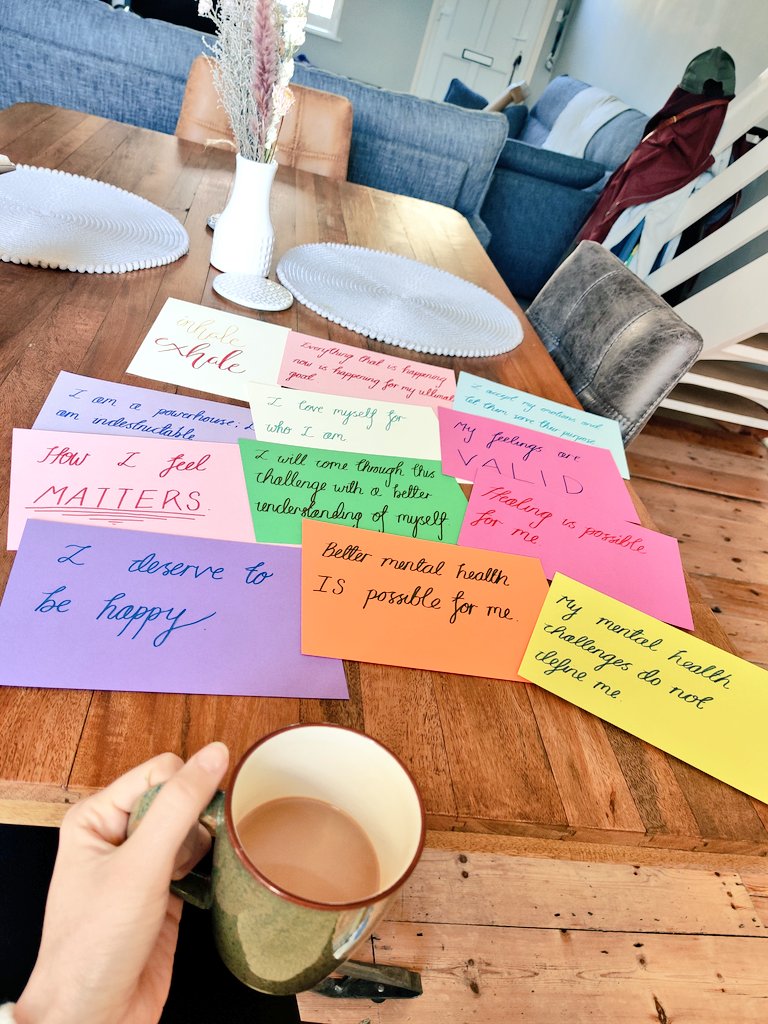 inhale
exhale
Everything that is happening
now is happening for my ultimate
good
I accept my emotions and
let them serve their purpose
I am a powerhouse; I
am indestructable
I love myself for
who I am
My feelings are
VALID
How I feel
MATTERS.
I will come through this
challenge with a better
understanding of myself
Healing is possible
for me.
I deserve to
be happy
Better mental health
IS possible for me.
My mental health
challenges do not
define me.